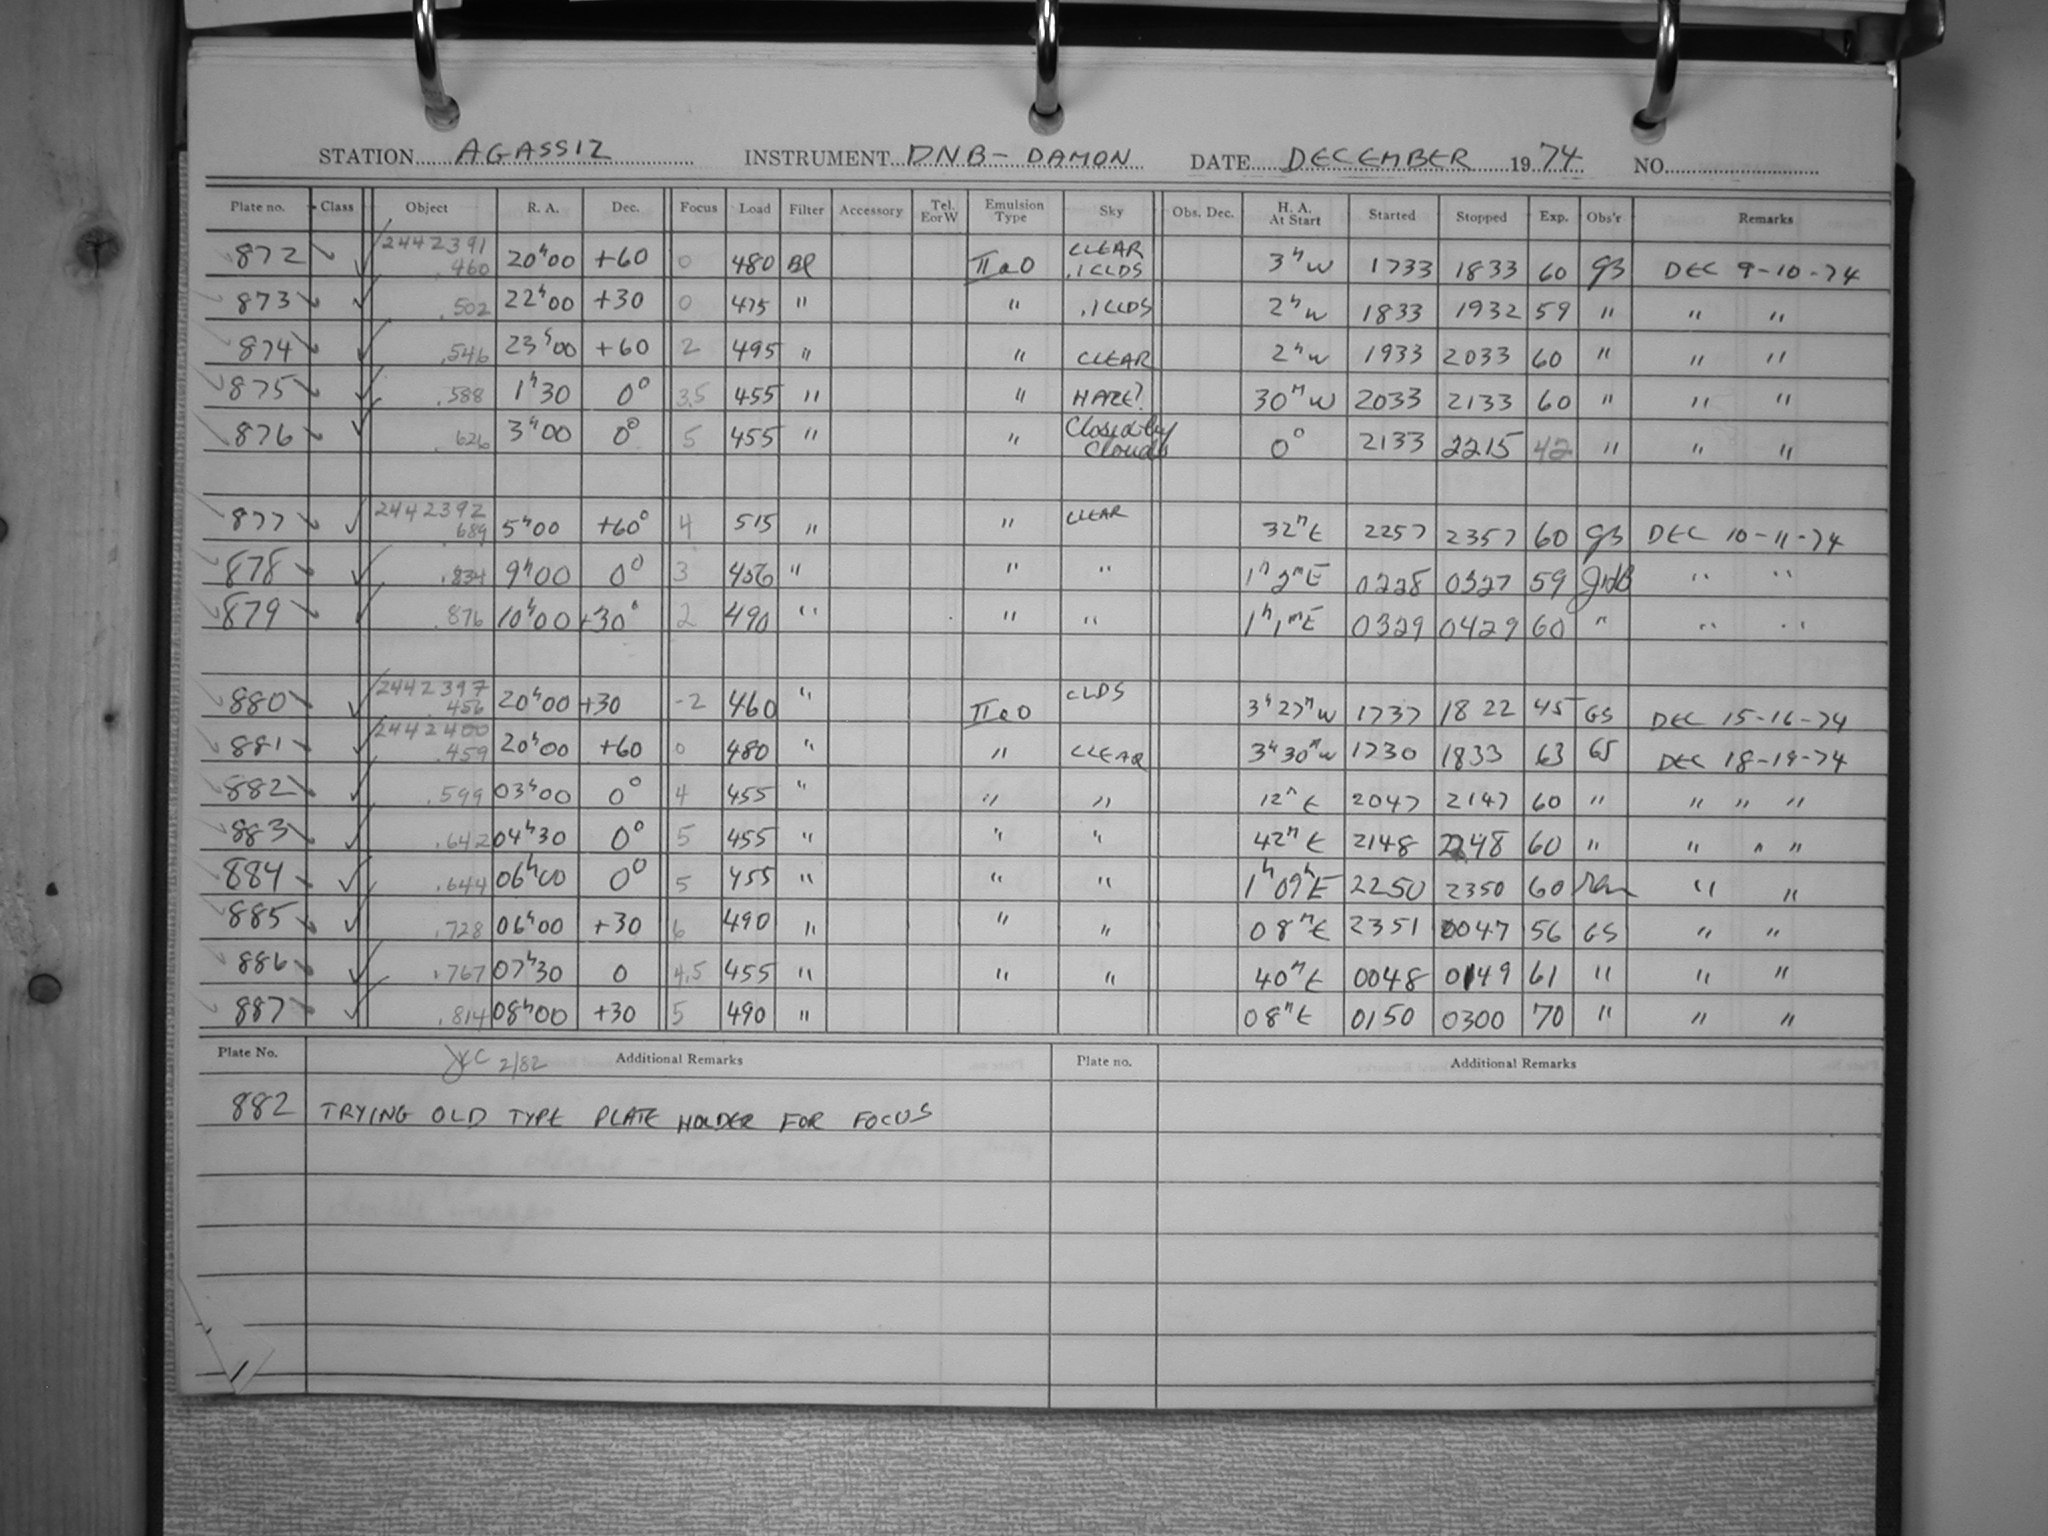 STATION AGASSIZ INSTRUMENT DNB - DAMON DATE DECEMBER 1974 NO.
Plate no. Class Object R. A. Dec. Focus Load Filter Accessory Tel. E or W Emulsion Type Sky Obs. Dec. H. A. At Start Started Stopped Exp. Obs'r Remarks
872 2442391 .460 20h00 +60 0 480 Bl IIaO CLEAR .1 CLDS 3h W 1733 1833 60 GS DEC 9-10-74
873 .502 22h00 +30 0 475 " " .1 CLDS 2h W 1833 1932 59 " " "
874 .546 23h00 +60 2 495 " " CLEAR 2h W 1933 2033 60 " " "
875 .588 1h30 0° 3.5 455 " " HAZE? 30m W 2033 2133 60 " " "
876 .626 3h00 0° 5 455 " " Closed by Clouds 0° 2133 2215 42 " " "
877 2442392 .689 5h00 +60° 4 515 " " CLEAR 32m E 2257 2357 60 GS DEC 10-11-74
878 .834 9h00 0° 3 456 " " " 1h 2m E 0228 0327 59 " "
879 .876 10h00 +30° 2 490 " " " 1h 1m E 0329 0429 60 " " "
880 2442397 .456 20h00 +30 -2 460 " IIaO CLDS 3h 27m W 1737 1822 45 GS DEC 15-16-74
881 2442400 .459 20h00 +60 0 480 " " CLEAR 3h 30m W 1730 1833 63 GS DEC 18-19-74
882 .599 03h00 0° 4 455 " " " 12m E 2047 2147 60 " " " "
883 .642 04h30 0° 5 455 " " " 42m E 2148 2248 60 " " " "
884 .644 06h00 0° 5 455 " " " 1h 09m E 2250 2350 60 " "
885 .728 06h00 +30 6 490 " " " 08m E 2351 0047 56 GS " "
886 .767 07h30 0 4.5 455 " " " 40m E 0048 0149 61 " " "
887 .814 08h00 +30 5 490 " 08m E 0150 0300 70 " " "
Plate No. 2/82 Additional Remarks Plate no. Additional Remarks
882 TRYING OLD TYPE PLATE HOLDER FOR FOCUS